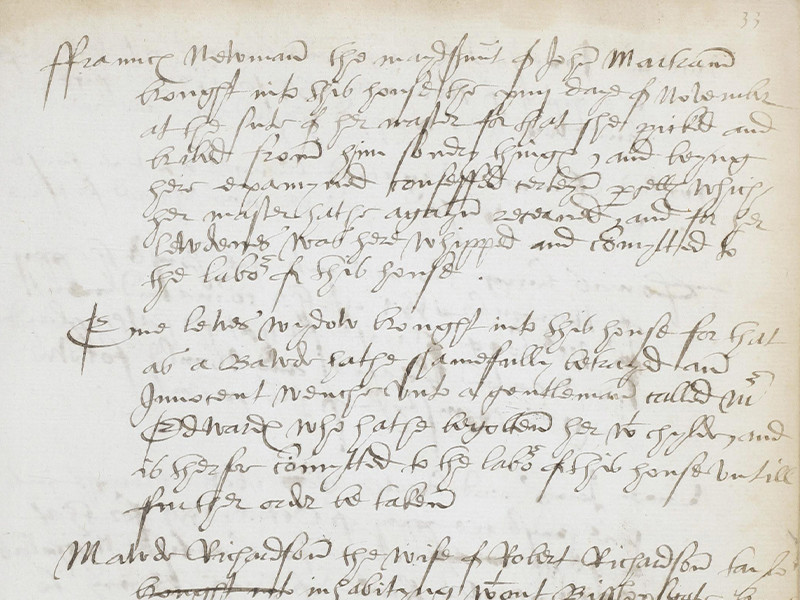 33
ffrauncs Newman the maydsrunt of John Markam
brought into this house the xviij daye of November
at the sute of her master for that she picked and
bribed from him sondry things, and beyng
here examyned confessed certeyn pcells which
her master hathe agayn receaved, and for her
lewdenes was here whipped and comytted to
the labor of this house.
Eme lewes wydow brought into this house for that
as a Bawde hathe shamefully betrayed an
Innocent wenche vnto a gentleman called Mr
Edwards who hathe begotten her wt chylde, and
is therfor comytted to the labor of this house vntill
further order be taken
Mawde Richardson the wife of Robert Richardson
brought into inhabityng wtout Bisshopsgate